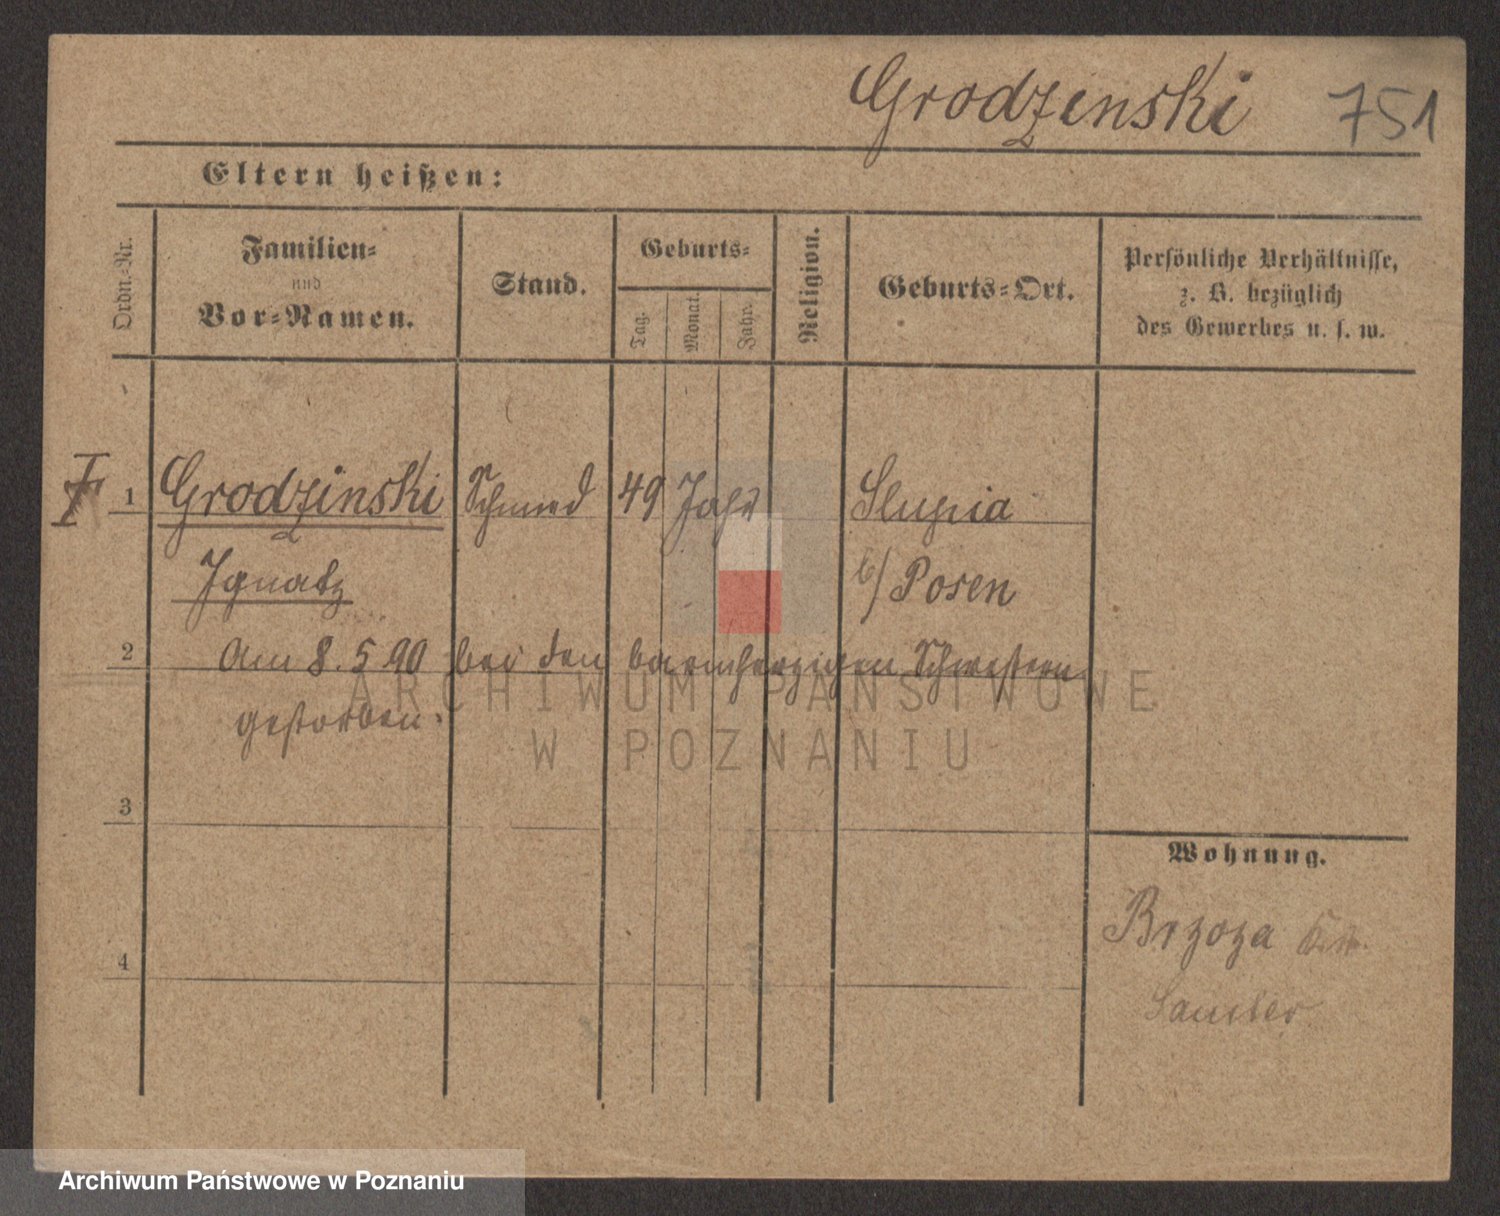 Grodzinski 751
Eltern heißen:
Ordn.-Nr.
Familien-
und
Vor-Namen.
Stand.
Geburts-
Tag.
Monat.
Jahr.
Religion.
Geburts-Ort.
Persönliche Verhältnisse,
z. B. bezüglich
des Gewerbes u. s. w.
1 Grodzinski Schmied 49 Jahr Slupia
Ignatz b/ Posen
2 Am 8. 5 90 bei den barmherzigen Schwestern
gestorben.
ARCHIWUM PAŃSTWOWE
W POZNANIU
3
Wohnung.
Brzoza
4
Samter
Archiwum Państwowe w Poznaniu